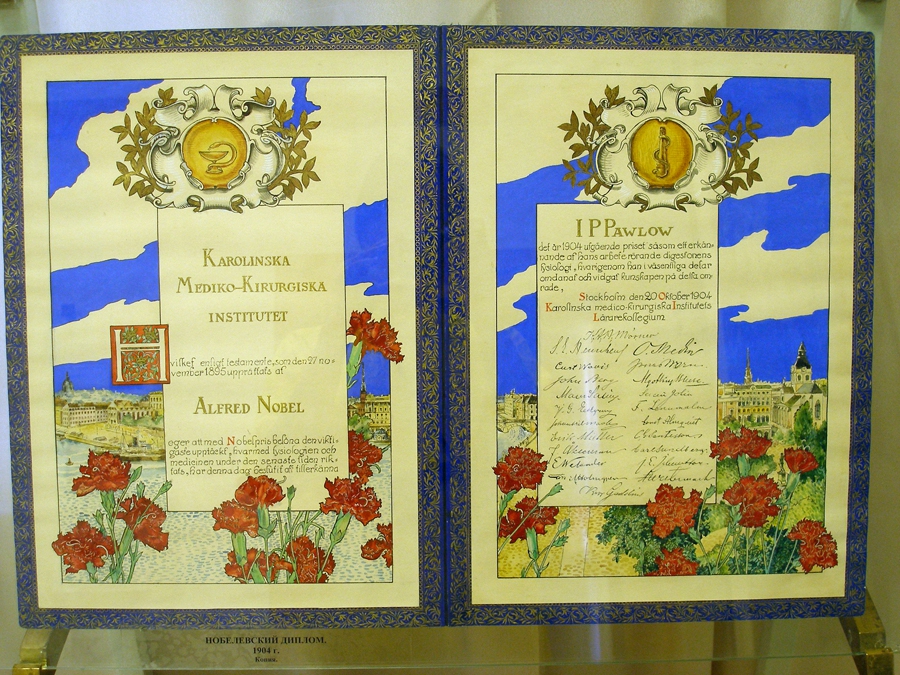 KAROLINSKA
MEDIKO-KIRURGISKA
INSTITUTET
H
vilket enligt testamente, som den 27 no-
vember 1895 upprättats af
ALFRED NOBEL
eger att med Nobelpris belöna den vikti-
gaste upptäckt, hvarmed fysiologien och
medicinen under den senaste tiden rik-
tats, har denna dag beslutit att tillerkänna
I P PAWLOW
det år 1904 utgående priset såsom ett erkän-
nande af hans arbete rörande digestionens
fysiologi, hvarigenom han i väsentliga delar
omdanat och vidgat kunskapen på detta om-
råde,
Stockholm den 20 Oktober 1904
Karolinska medico-kirurgiska Institutets
Lärarekollegium
Mörner
O. Medin
Carl
John Berg
Erik Müller
Carl Sundberg
НОБЕЛЕВСКИЙ ДИПЛОМ.
1904 г.
Копия.